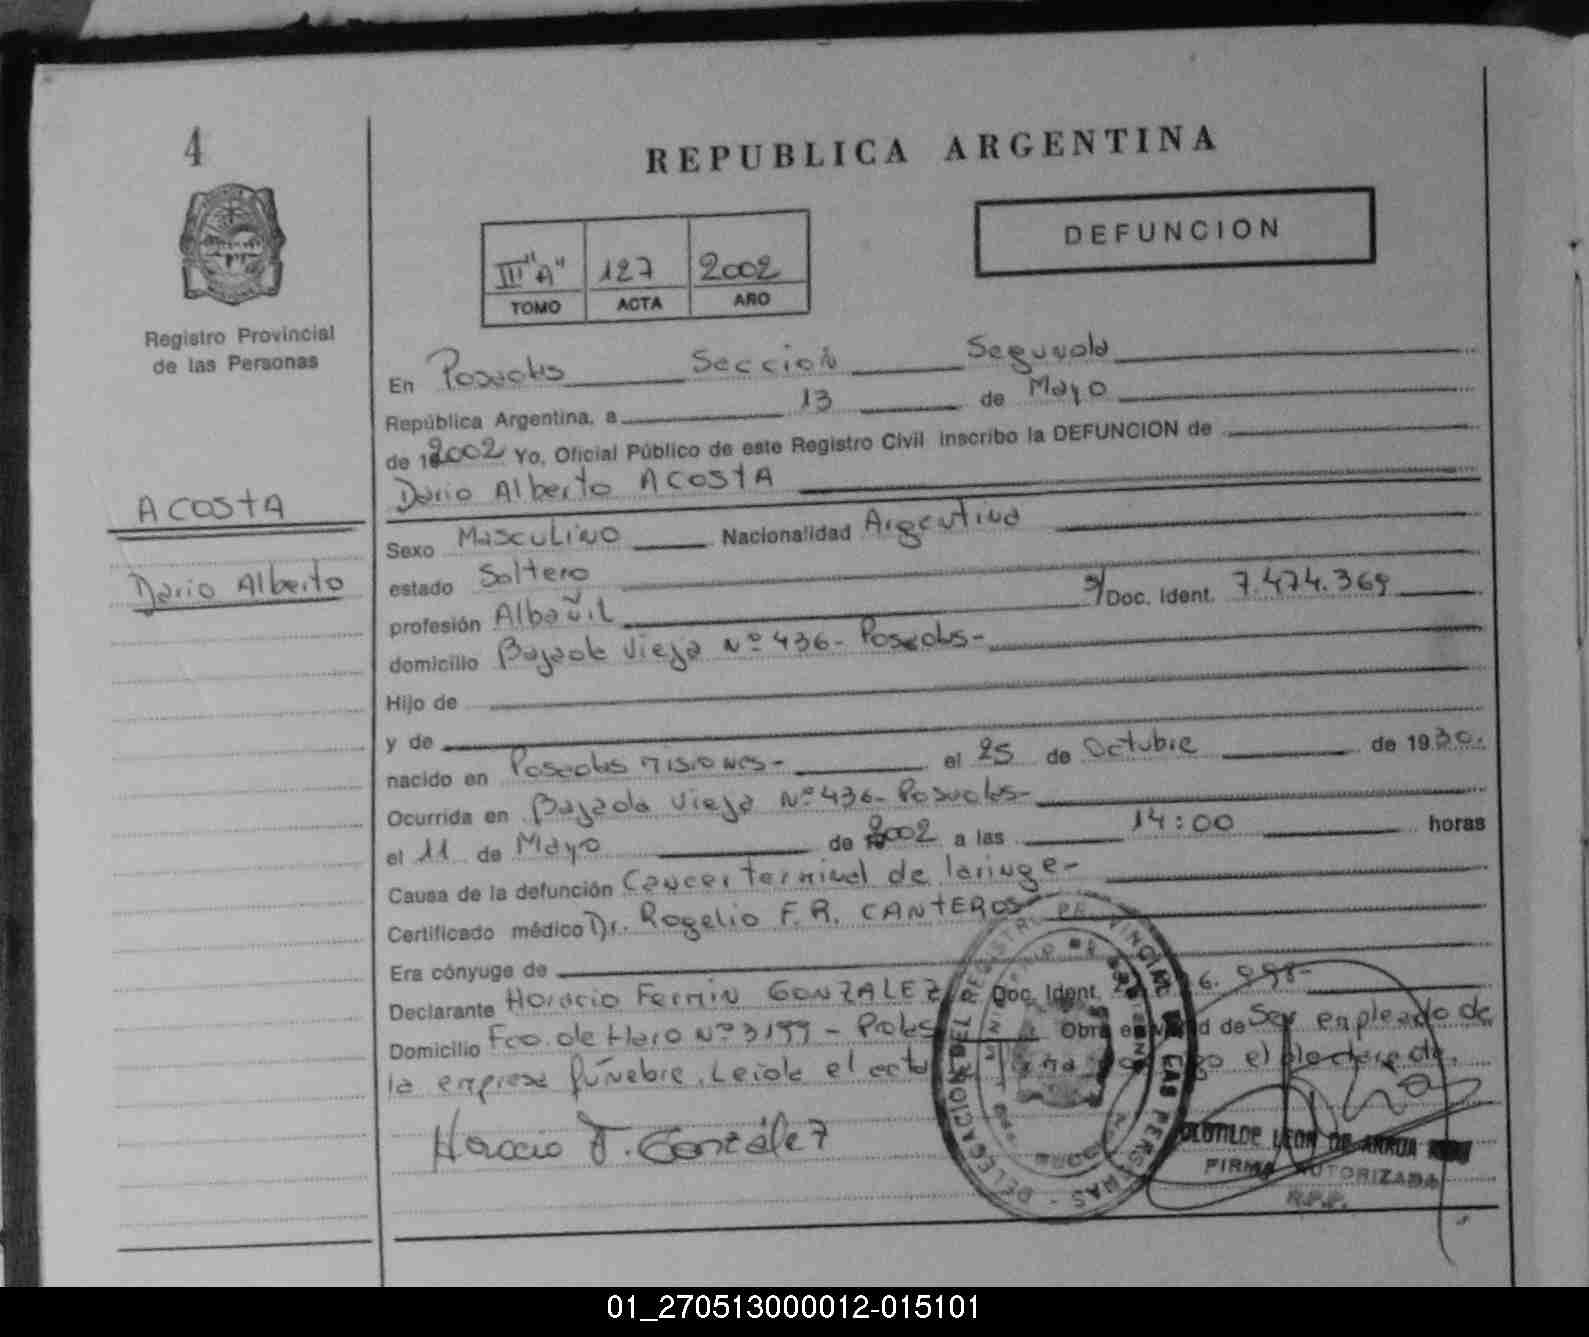 4
REPUBLICA ARGENTINA
DEFUNCION
III "A" 127 2002
TOMO ACTA AÑO
Registro Provincial
de las Personas
ACOSTA
Dario Alberto
En Posadas Sección Segunda
República Argentina, a 13 de Mayo
de 2002 Yo, Oficial Público de este Registro Civil inscribo la DEFUNCION de
Dario Alberto ACOSTA
Sexo Masculino Nacionalidad Argentina
estado Soltero
profesión Albañil s/Doc. Ident. 7.474.369
domicilio Bajada Vieja Nº 436 - Posadas -
Hijo de
y de
nacido en Posadas Misiones - el 25 de Octubre de 1930.
Ocurrida en Bajada Vieja Nº 436 - Posadas -
el 11 de Mayo de 2002 a las 14:00 horas
Causa de la defunción Cancer terminal de laringe -
Certificado médico Dr. Rogelio F.R. CANTEROS
Era cónyuge de
Declarante Horacio Fermin GONZALEZ Doc. Ident.
Domicilio Fco. de Haro Nº 3199 - Pdas Obra en de Ser empleado de
la empresa fúnebre. Leida el acta el declarante.
Horacio F. González
DELEGACION DEL REGISTRO PROVINCIAL DE LAS PERSONAS
CLOTILDE LEON DE ARRUA
FIRMA AUTORIZADA
R.P.P.
01_270513000012-015101